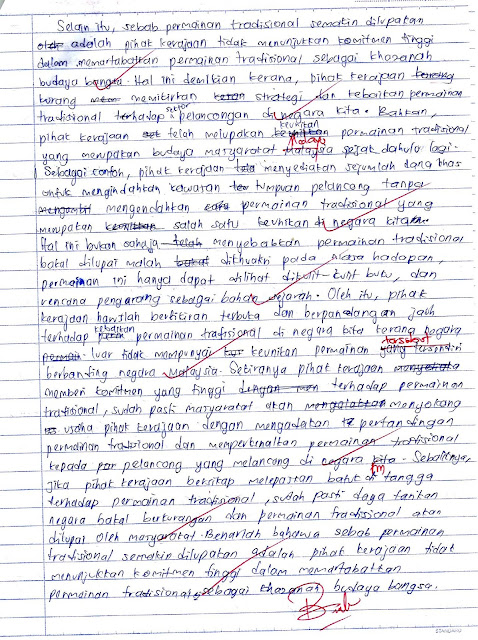 Selain itu, sebab permainan tradisional semakin dilupakan
adalah pihak kerajaan tidak menunjukkan komitmen tinggi
dalam memartabatkan permainan tradisional sebagai khazanah
budaya bangsa. Hal ini demikian kerana, pihak kerajaan
kurang memikirkan strategi dan kebaikan permainan
tradisional terhadap sektor pelancongan di negara kita. Bahkan,
pihak kerajaan telah melupakan keunikan permainan tradisional
yang merupakan budaya masyarakat Malaysia Melayu sejak dahulu lagi.
Sebagai contoh, pihak kerajaan menyediakan sejumlah dana khas
untuk mengindahkan kawasan tumpuan pelancong tanpa
mengendahkan permainan tradisional yang
merupakan salah satu keunikan di negara kita.
Hal ini bukan sahaja menyebabkan permainan tradisional
bakal dilupai malah dikhuatiri pada masa hadapan,
permainan ini hanya dapat dilihat dikulit-kulit buku, dan
rencana pengarang sebagai bahan sejarah. Oleh itu, pihak
kerajaan haruslah berfikiran terbuka dan berpandangan jauh
terhadap kebaikan permainan tradisional di negara kita kerana negara
luar tidak mempunyai keunikan permainan tersebut
berbanding negara Malaysia. Sekiranya pihak kerajaan
memberi komitmen yang tinggi terhadap permainan
tradisional, sudah pasti masyarakat akan menyokong
usaha pihak kerajaan dengan mengadakan pertandingan
permainan tradisional dan memperkenalkan permainan tradisional
kepada pelancong yang melancong di negara ini. Sebaliknya,
jika pihak kerajaan bersikap melepaskan batuk di tangga
terhadap permainan tradisional, sudah pasti daya tarikan
negara bakal berkurangan dan permainan tradisional akan
dilupai oleh masyarakat. Benarlah bahawa sebab permainan
tradisional semakin dilupakan adalah pihak kerajaan tidak
menunjukkan komitmen tinggi dalam memartabatkan
permainan tradisional sebagai khazanah budaya bangsa.
STANDARD